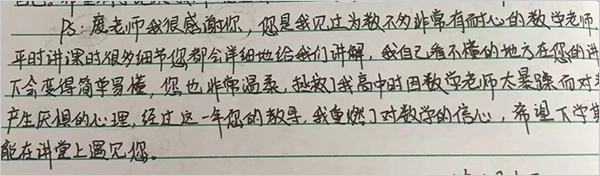 PS：庞老师我很感谢你，您是我见过为数不多非常有耐心的数学老师
平时讲课时很多细节您都会详细地给我们讲解，我自己看不懂的地方在您的讲
下会变得简单易懂，您也非常温柔，拯救了我高中时因数学老师太暴躁而对
产生厌惧的心理，经过这一年您的教导，我重燃了对数学的信心，希望下学期
能在讲堂上遇见您。